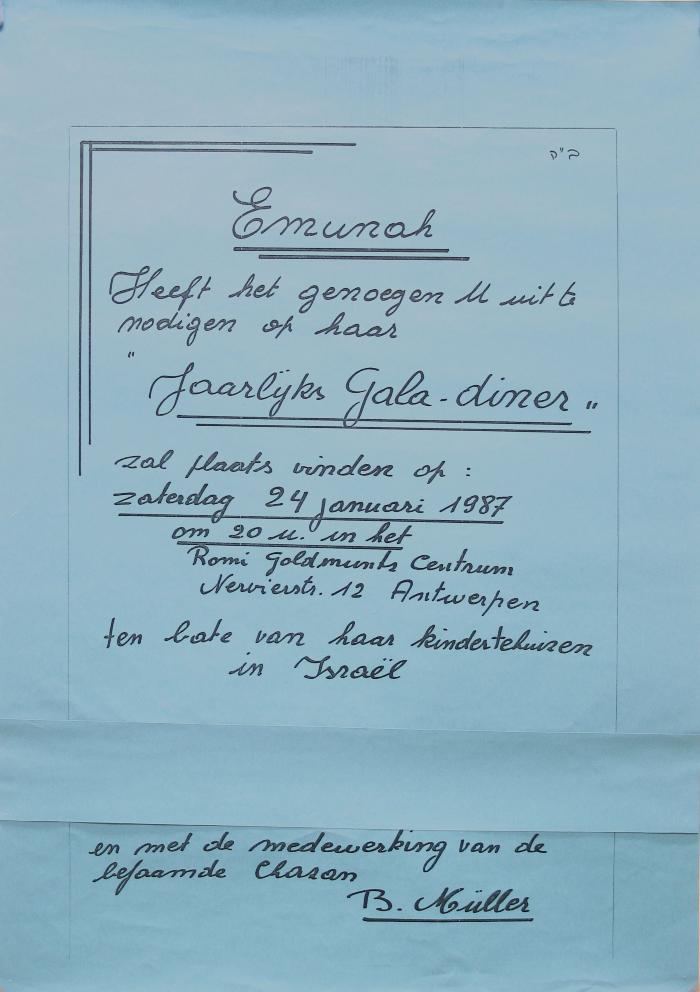 ב"ה
Emunah
Heeft het genoegen U uit te
nodigen op haar
"Jaarlijks Gala-diner"
zal plaats vinden op :
zaterdag 24 januari 1987
om 20 u. in het
Romi Goldmuntz Centrum
Nervierstr. 12 Antwerpen
ten bate van haar kindertehuizen
in Israël
en met de medewerking van de
befaamde Chazan
B. Müller